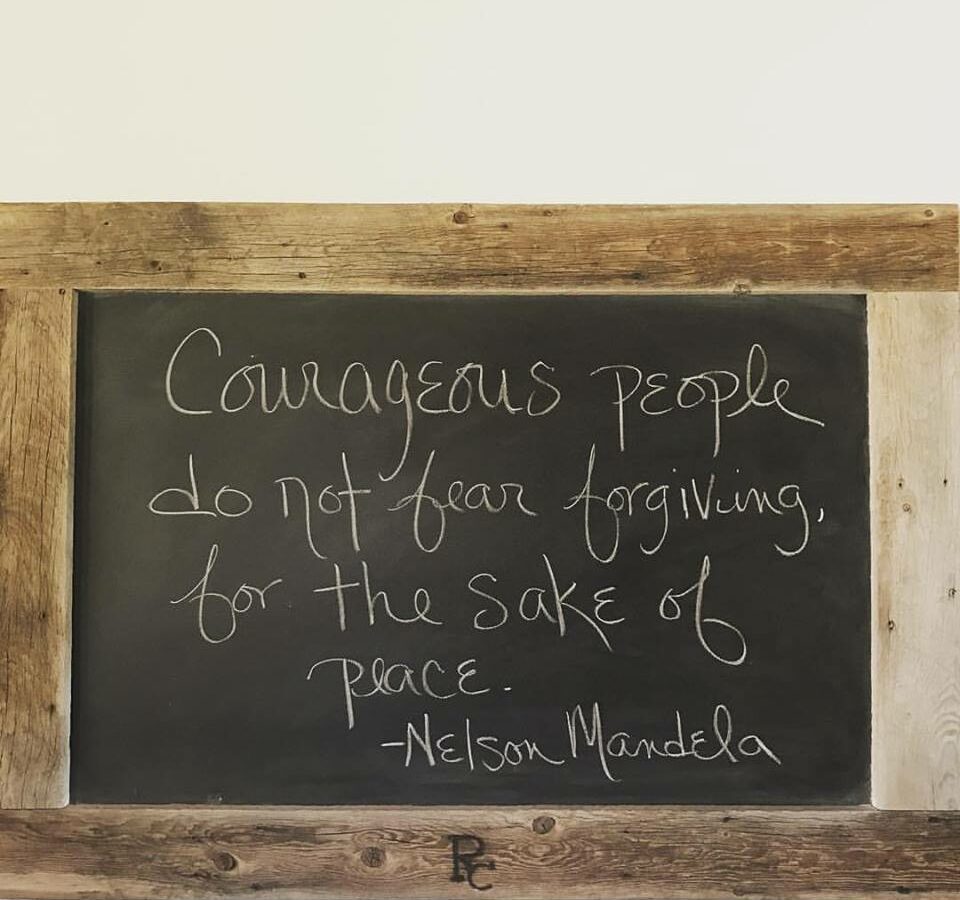 Courageous people
do not fear forgiving,
for the sake of
peace.
-Nelson Mandela
RC